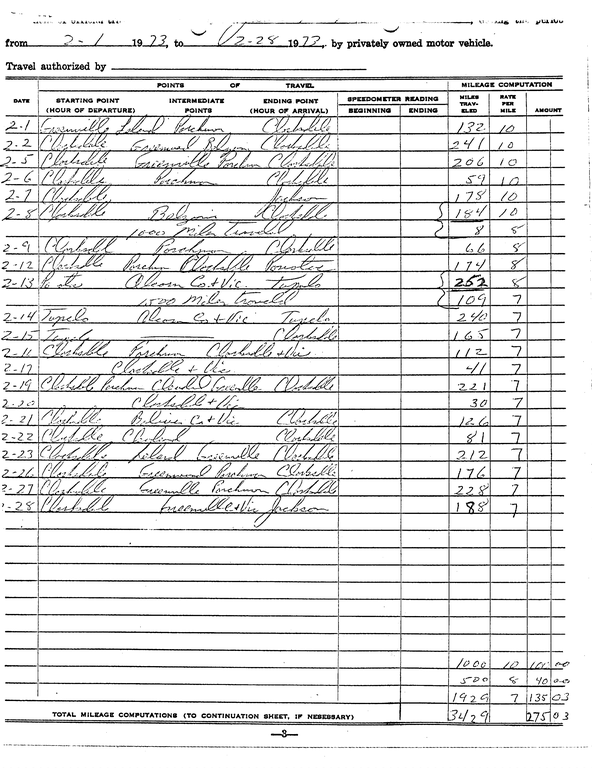 from 2-1 1973, to 2-28 1973, by privately owned motor vehicle.
Travel authorized by
POINTS OF TRAVEL MILEAGE COMPUTATION
DATE STARTING POINT (HOUR OF DEPARTURE) INTERMEDIATE POINTS ENDING POINT (HOUR OF ARRIVAL) SPEEDOMETER READING BEGINNING ENDING MILES TRAV- ELED RATE PER MILE AMOUNT
2-1 Greenville Leland Parchman Clarksdale 132 10
2-2 Clarksdale Greenwood Belzoni Clarksdale 241 10
2-5 Clarksdale Greenville Parchman Clarksdale 206 10
2-6 Clarksdale Parchman Clarksdale 59 10
2-7 Clarksdale Jackson 178 10
2-8 Clarksdale Belzoni Clarksdale 184 10
1000 Miles Traveled 8 8
2-9 Clarksdale Parchman Clarksdale 66 8
2-12 Clarksdale Parchman Clarksdale Pontotoc 174 8
2-13 Alcorn Co + Vic. Tupelo 252 8
1,500 Miles traveled 109 7
2-14 Tupelo Alcorn Co + Vic Tupelo 240 7
2-15 Tupelo Clarksdale 165 7
2-16 Clarksdale Parchman Clarksdale + Vic 112 7
2-17 Clarksdale + Vic. 41 7
2-19 Clarksdale Parchman Cleveland Greenville Clarksdale 221 7
2-20 Clarksdale + Vic 30 7
2-21 Clarksdale Bolivar Co + Vic. Clarksdale 126 7
2-22 Clarksdale Cleveland Clarksdale 81 7
2-23 Clarksdale Leland Greenville Clarksdale 212 7
2-26 Clarksdale Greenwood Parchman Clarksdale 176 7
2-27 Clarksdale Greenville Parchman Clarksdale 228 7
2-28 Clarksdale Greenville + Vic Jackson 188 7
1000 10 100 00
500 8 40 00
1929 7 135 03
TOTAL MILEAGE COMPUTATIONS (TO CONTINUATION SHEET, IF NESESSARY) 3429 275 03
—3—